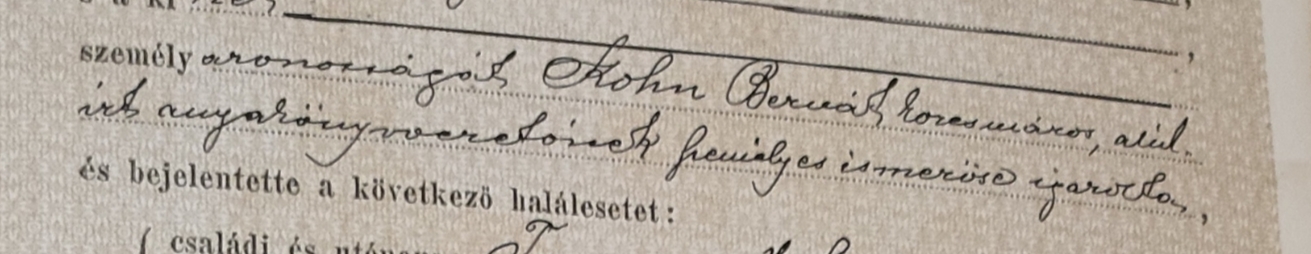 személy azonosságát Kohn Bernát korcsmáros, alul-
írt anyakönyvvezetőnek személyes ismerőse igazolta,
és bejelentette a következő halálesetet:
családi és